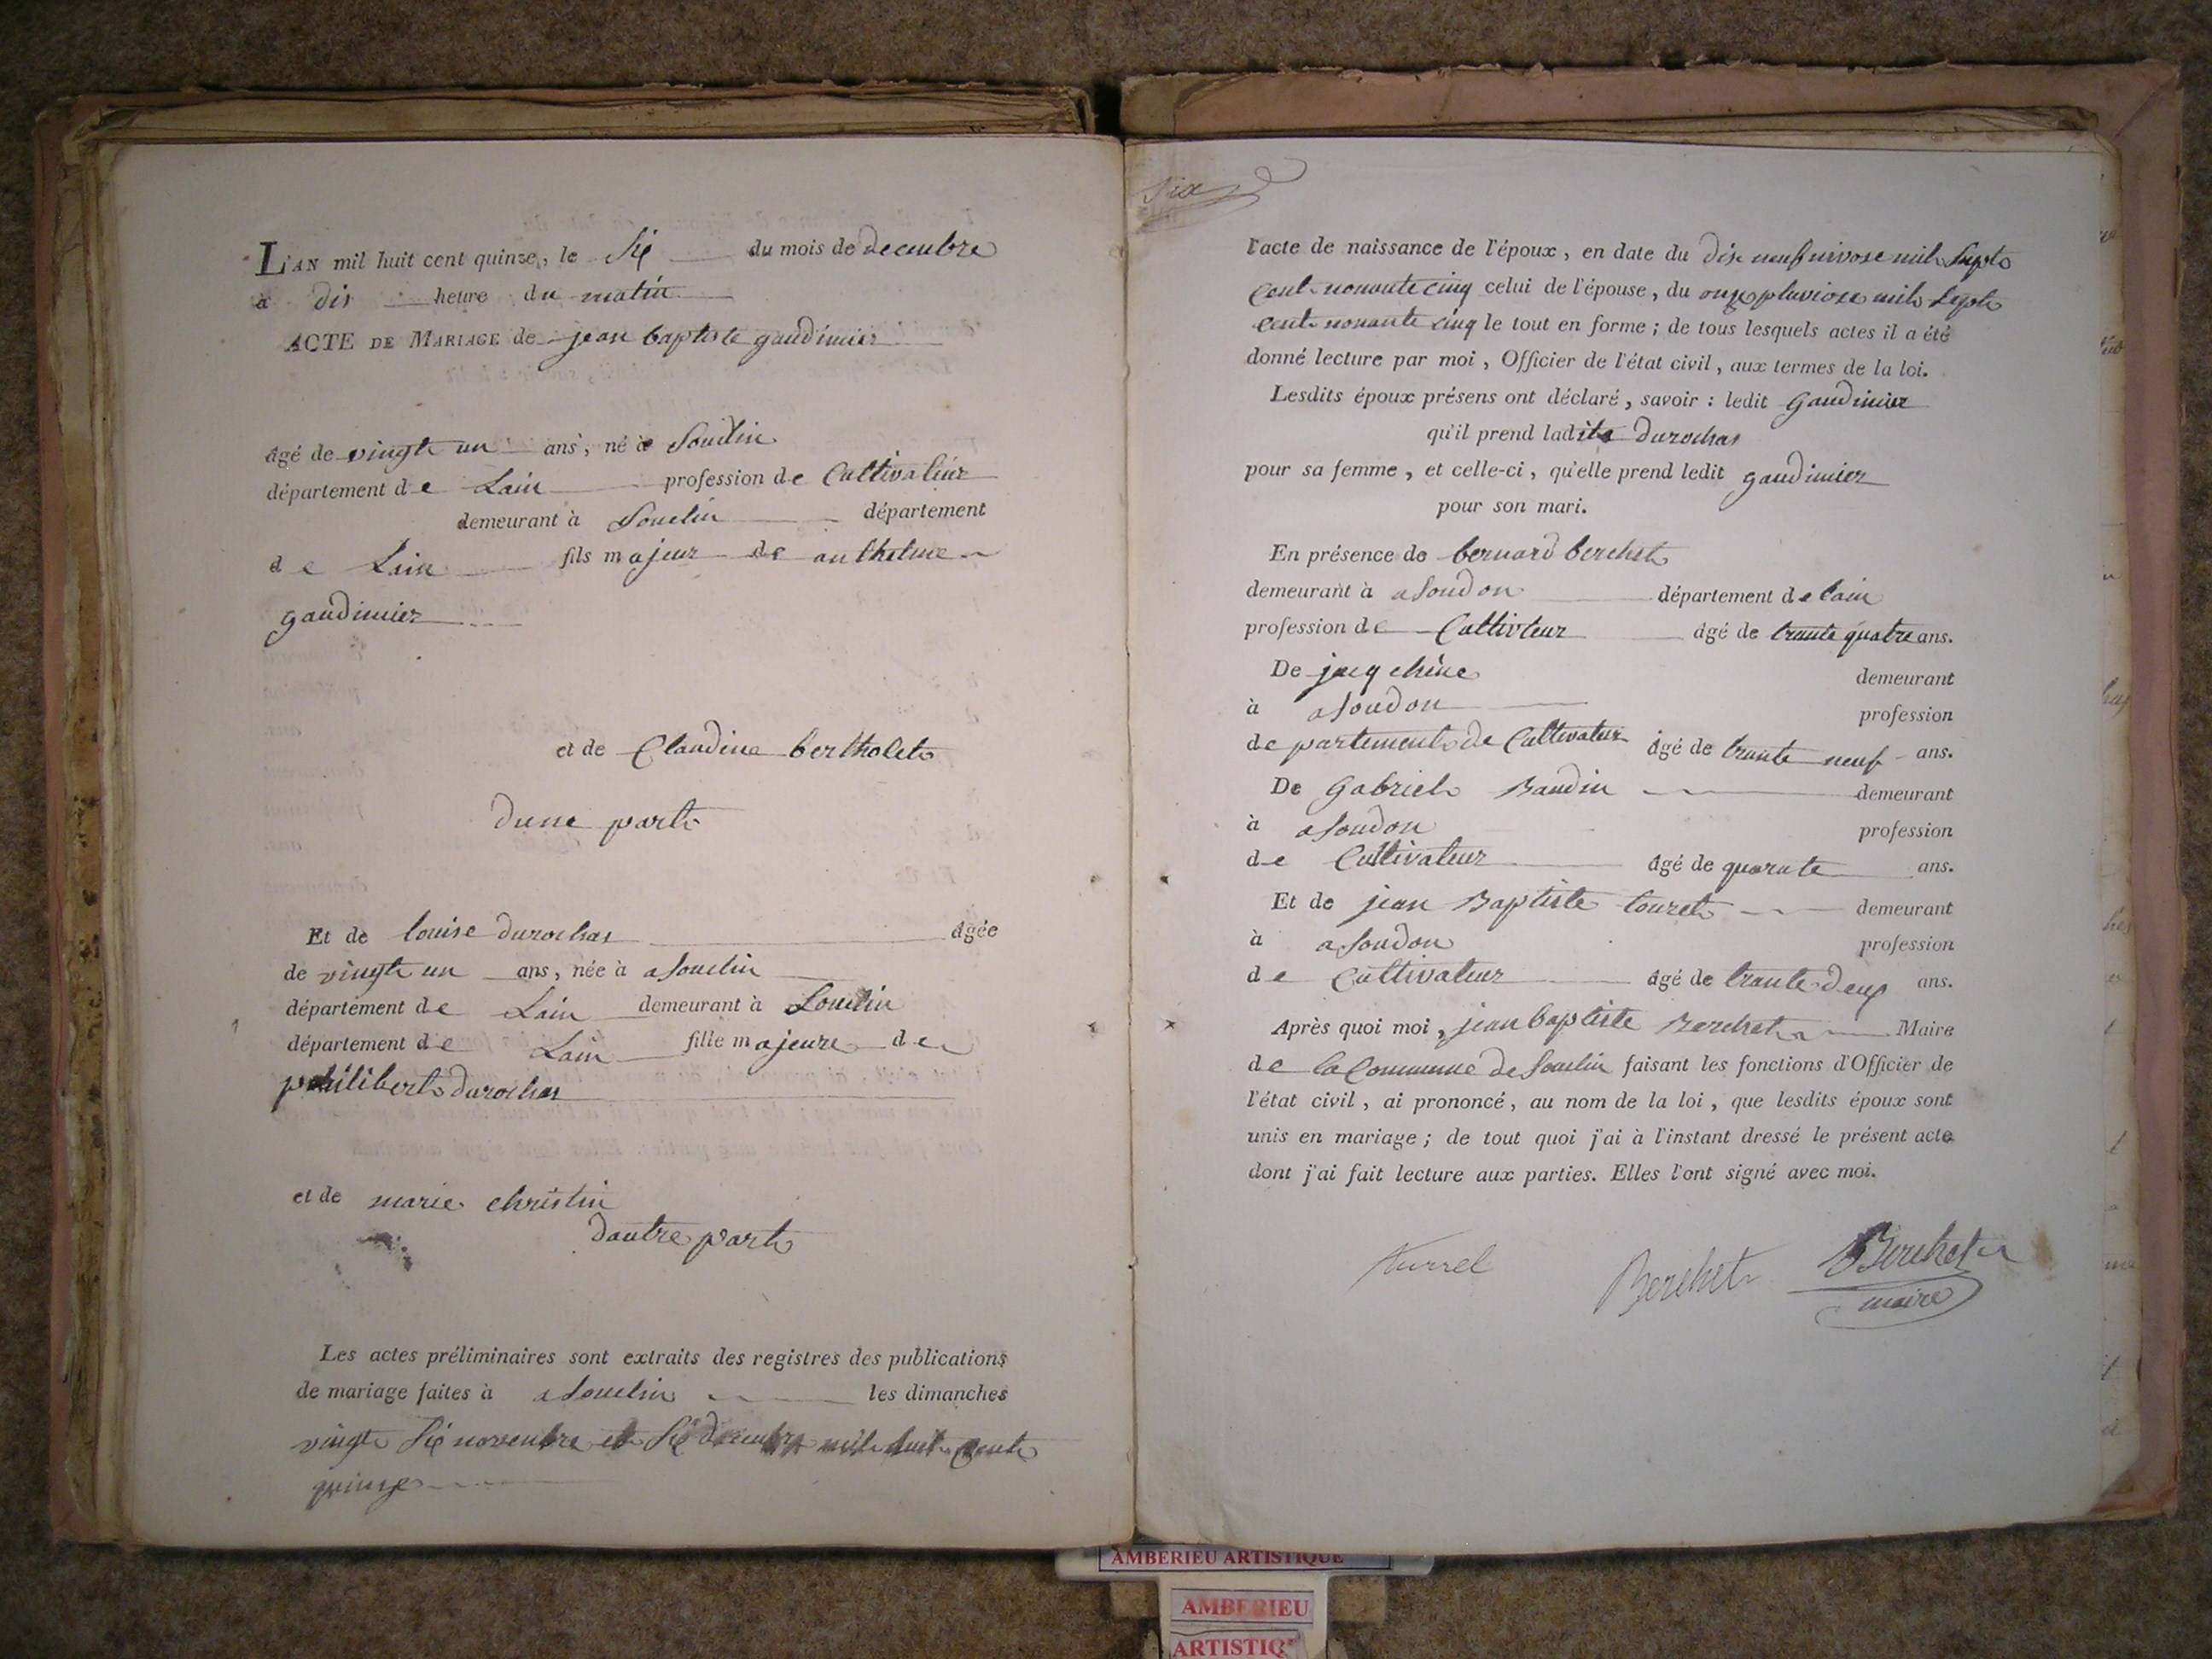 L'AN mil huit cent quinze, le Six du mois de decembre
à dix heure du matin
ACTE DE MARIAGE de jean baptiste gaudimier
âgé de vingt un ans, né à Souclin
département de Lain profession de Cultivateur
demeurant à Souclin département
de Lain fils majeur de anthelme
gaudimier
et de Claudine bertholet
dune part
Et de louise durochas âgée
de vingt un ans, née à a Souclin
département de Lain demeurant à Souclin
département de Lain fille majeure de
philibert durochas
et de marie christin
dautre part
Les actes préliminaires sont extraits des registres des publications
de mariage faites à a Souclin les dimanches
vingt Six novembre et Six decembre mil huit cent
quinze
Six
l'acte de naissance de l'époux, en date du dix neuf nivose mil Sept
Cent nonante cinq celui de l'épouse, du onze pluviose mil Sept
Cent nonante cinq le tout en forme ; de tous lesquels actes il a été
donné lecture par moi, Officier de l'état civil, aux termes de la loi.
Lesdits époux présens ont déclaré, savoir : ledit gaudimier
qu'il prend ladite durochas
pour sa femme, et celle-ci, qu'elle prend ledit gaudimier
pour son mari.
En présence de bernard berchet
demeurant à a Soudon département de lain
profession de Cultivteur âgé de trante quatre ans.
De jacq chêne demeurant
à a Soudon profession
de partement de Cultivateur âgé de trante neuf ans.
De gabriel Baudin demeurant
à a Soudon profession
de Cultivateur âgé de quarate ans.
Et de jean Baptiste touret demeurant
à a Soudon profession
de Cultivateur âgé de trante deux ans.
Après quoi moi, jean baptiste Berchet Maire
de la Commune de Souclin faisant les fonctions d'Officier de
l'état civil, ai prononcé, au nom de la loi, que lesdits époux sont
unis en mariage ; de tout quoi j'ai à l'instant dressé le présent acte
dont j'ai fait lecture aux parties. Elles l'ont signé avec moi.
Berchet Berchet
maire
AMBERIEU ARTISTIQUE
AMBERIEU
ARTISTIQ